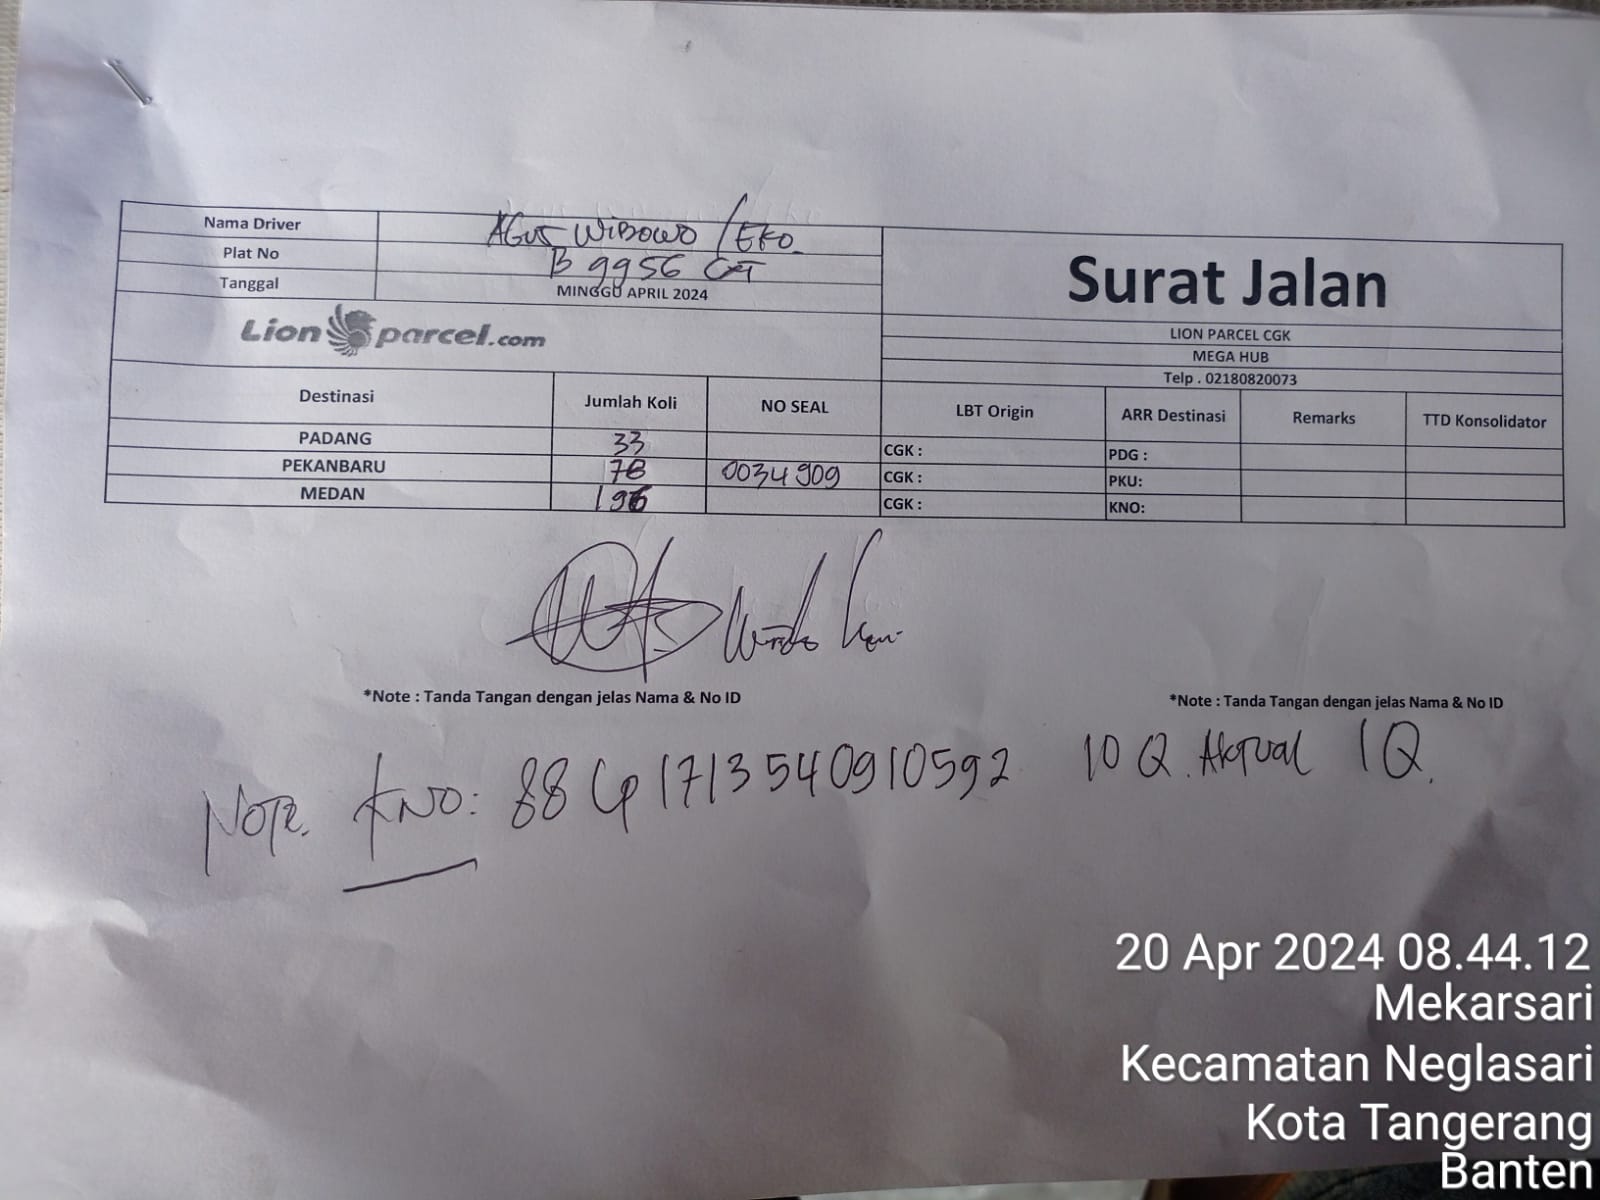 Nama Driver AGUS WIBOWO / EKO
Plat No B 9956 CXT
Tanggal MINGGU APRIL 2024
Surat Jalan
Lion parcel.com
LION PARCEL CGK
MEGA HUB
Telp . 02180820073
Destinasi Jumlah Koli NO SEAL LBT Origin ARR Destinasi Remarks TTD Konsolidator
PADANG 33 CGK : PDG :
PEKANBARU 78 0034909 CGK : PKU:
MEDAN 196 CGK : KNO:
*Note : Tanda Tangan dengan jelas Nama & No ID
*Note : Tanda Tangan dengan jelas Nama & No ID
NOTE. KNO: 88 LP 1713540910592 10 Q. AKTUAL 1 Q.
20 Apr 2024 08.44.12
Mekarsari
Kecamatan Neglasari
Kota Tangerang
Banten